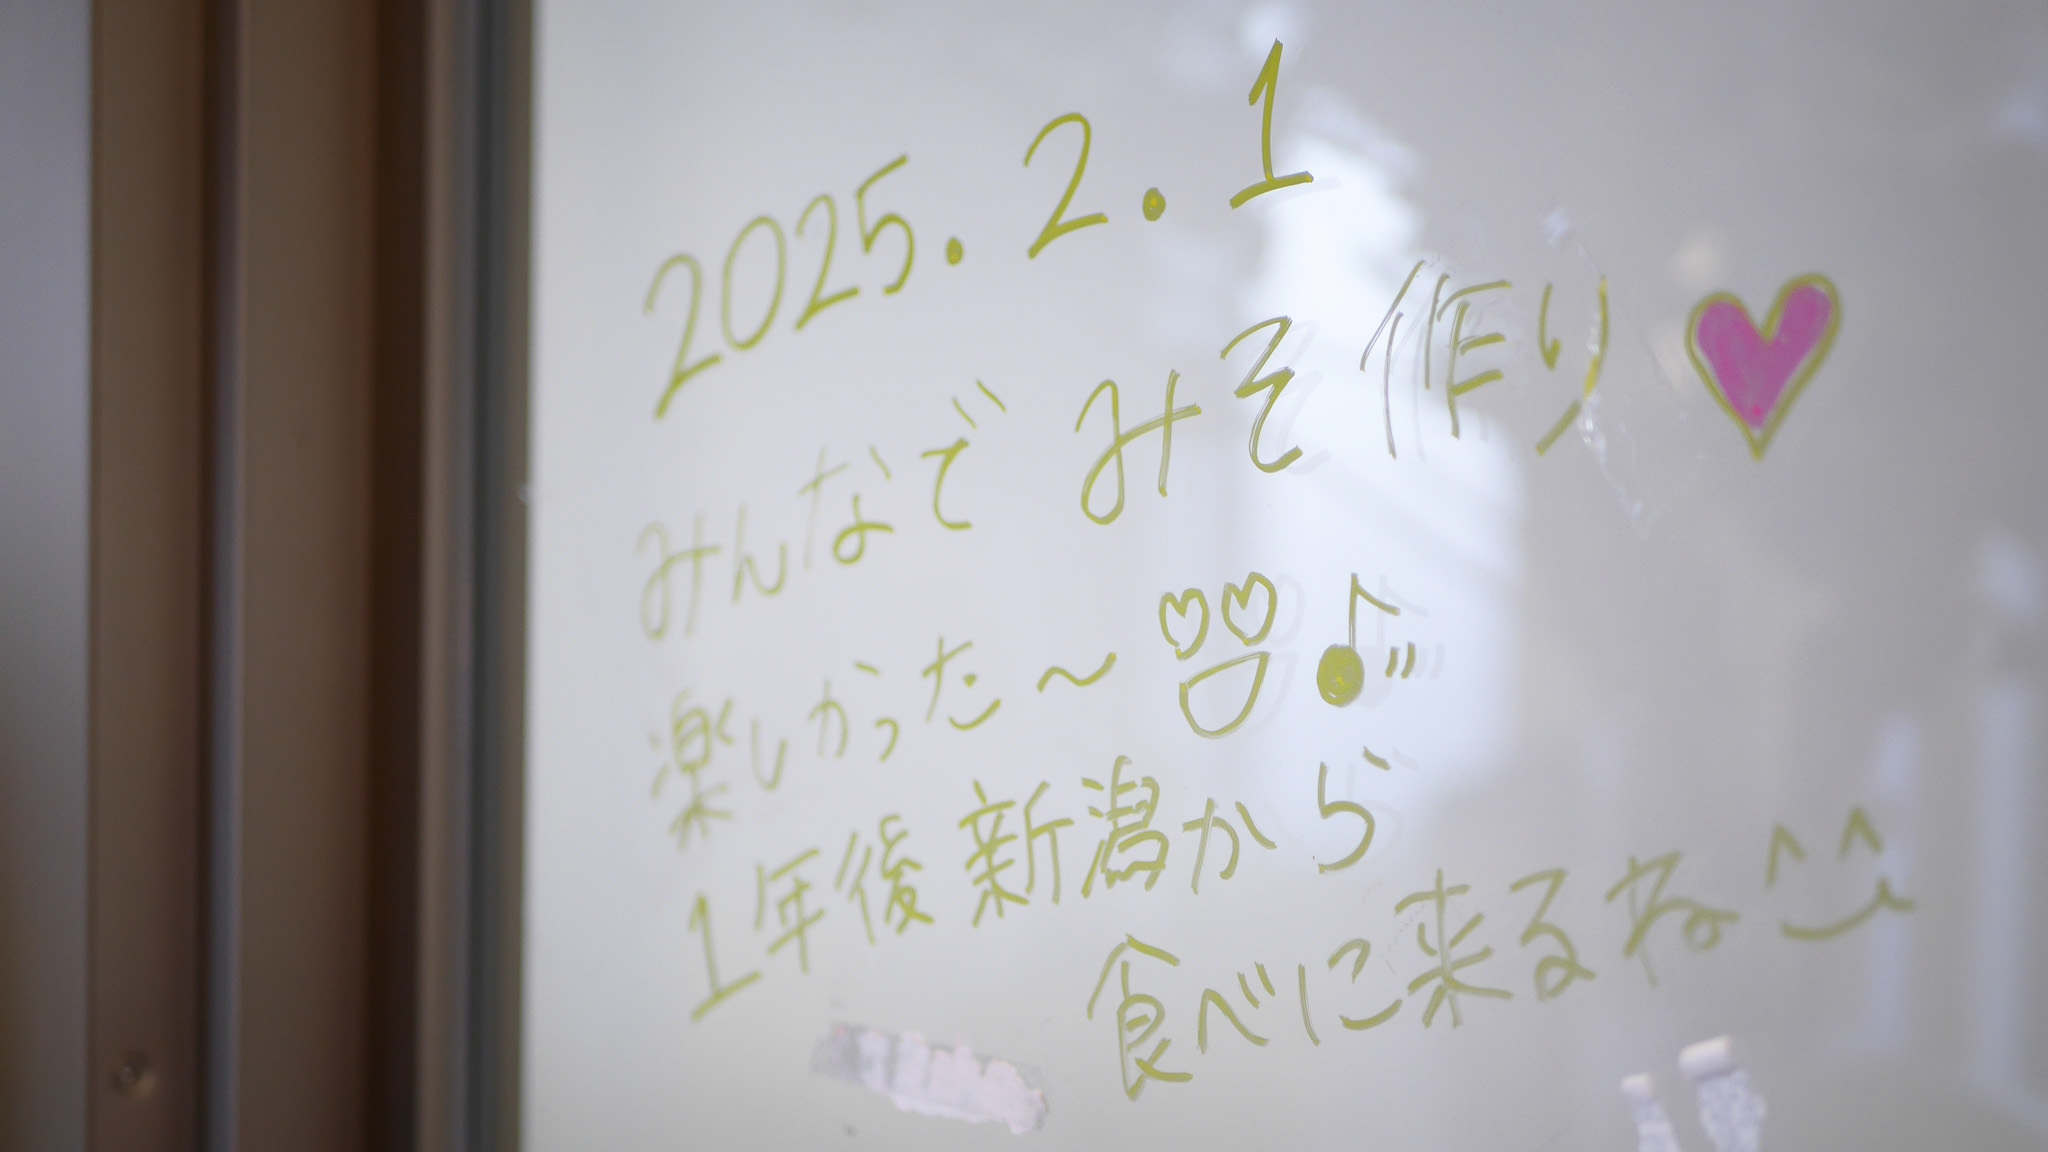 2025.2.1
みんなで みそ作り♥
楽しかった〜♪
1年後新潟から
食べに来るね